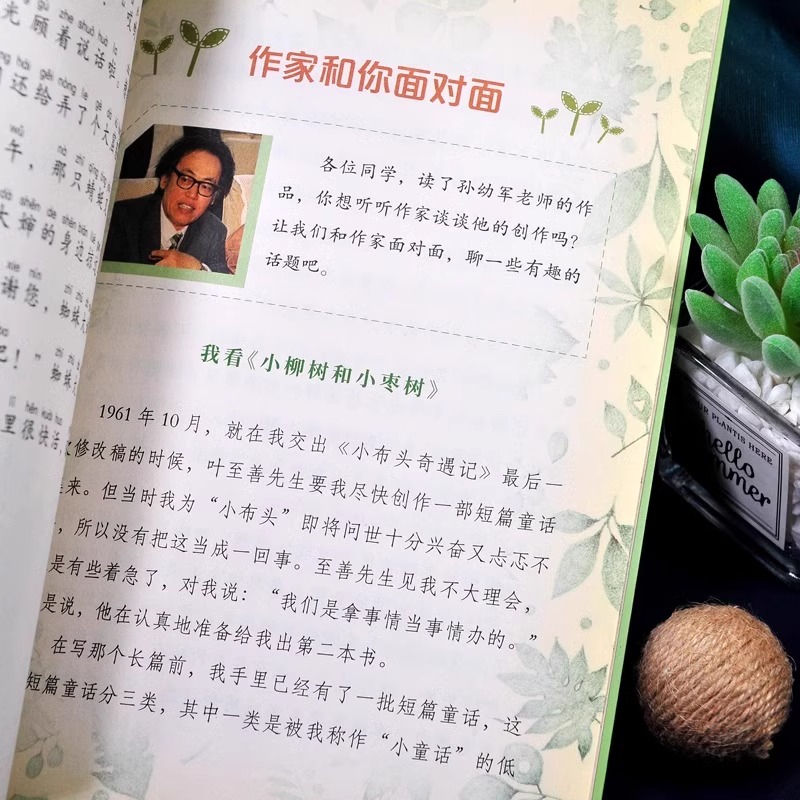 光顾着说话啦
还给弄了个大
午，那只蜻蜓
大婶的身边
谢您，蜘蛛
吧！”蜘蛛
里很快活
作家和你面对面
各位同学，读了孙幼军老师的作
品，你想听听作家谈谈他的创作吗？
让我们和作家面对面，聊一些有趣的
话题吧。
我看《小柳树和小枣树》
1961年10月，就在我交出《小布头奇遇记》最后一
次修改稿的时候，叶至善先生要我尽快创作一部短篇童话
来。但当时我为“小布头”即将问世十分兴奋又忐忑不
，所以没有把这当成一回事。至善先生见我不大理会，
是有些着急了，对我说：“我们是拿事情当事情办的。”
是说，他在认真地准备给我出第二本书。
在写那个长篇前，我手里已经有了一批短篇童话，这
短篇童话分三类，其中一类是被我称作“小童话”的低
UR PLANT IS HERE
hello
mmer